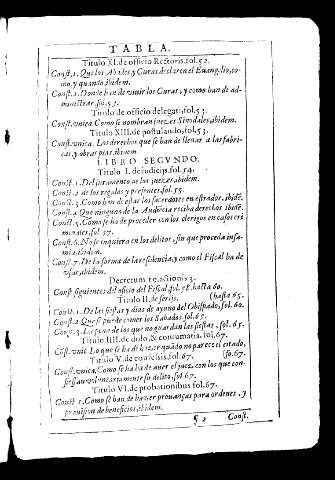 TABLA.
Titulo XI. de officio Rectoris, fol. 52.
Const. 1. Que los Abades, y Curas declaren el Euangelio, co-
mo, y quando, ibidem.
Const. 2. Donde han de viuir los Curas, y como han de ad-
ministrar, fol. 53.
Titulo de officio delegati, fol. 53.
Const. vnica Como se nombran juezes Sinodales, ibidem.
Titulo XIII. de postulando, fol. 53.
Const. vnica. Los derechos que se han de lleuar a las fabri-
cas, y obras pias, ibidem
LIBRO SEGVNDO.
Titulo I. de iudicijs, fol. 54.
Const. 1. Del juramento de los juezes, ibidem.
Const. 2 de los regalos y presentes, fol. 55.
Const. 3. Como han de estar los sacerdotes en estrados, ibidē.
Const. 4 Que ninguno de la Audiēcia reciba derechos ibidē.
Const. 5. Como se ha de proceder con los clerigos en casos cri
minales, fol 57.
Const. 6. No se inquiera en los delitos, sin que proceda infa-
mia, ibidem.
Const. 7. De la forma de la residencia, y como el Fiscal ha de
vsar, ibidem.
Decretum 19. actionis 3.
Const. siguientes del oficio del Fiscal, fol. 58. hasta 60.
Titulo II. de ferijs. (hasta 65.
Const. 1. De las fiestas y dias de ayuno del Obispado, fol. 60.
Const. 2. Que se puede comer los Sabados, fol. 65.
Const. 3. Las penas de los que no guardan las fiestas, fol. 65.
Titulo IIII. de dolo, & contumatia, fol. 67.
Cōst. vnic. Lo que se ha de hazer quādo no parece el citado,
Titulo V. de confessis, fol. 67. (fo. 67.
Const. vnica. Como se ha de auer el juez con los que con-
fiessan voluntariamente su delito, fol 67.
Titulo VI. de probationibus fol. 67.
Const 1. Como se han de hazer prouanças para ordenes, y
prouision de beneficios, ibidem.
¶ 2 Const.